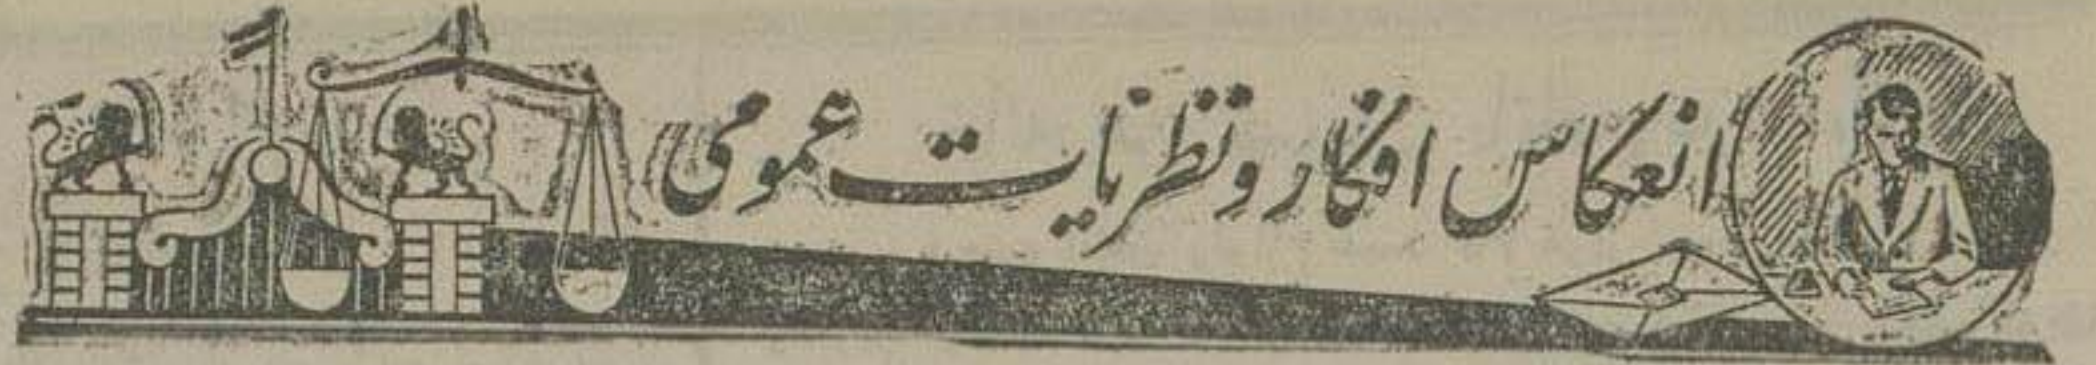 انعکاس افکار و نظریات عمومی